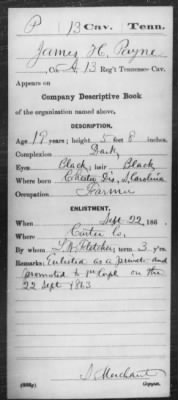 P | 13 Cav. | Tenn.
James H. Payne
Co. A, 13 Reg't Tennessee Cav.
Appears on
Company Descriptive Book
of the organization named above.
DESCRIPTION.
Age 19 years; height 5 feet 8 inches.
Complexion Dark
Eyes Black; hair Black
Where born Chester Dis, S. Carolina
Occupation Farmer
ENLISTMENT.
When Sept 22, 186 .
Where Carter Co.
By whom Fletcher; term 3 y'rs.
Remarks: Enlisted as a private and
promoted to Corpl on the
22 Sept 1863
Merchant
Copyist.